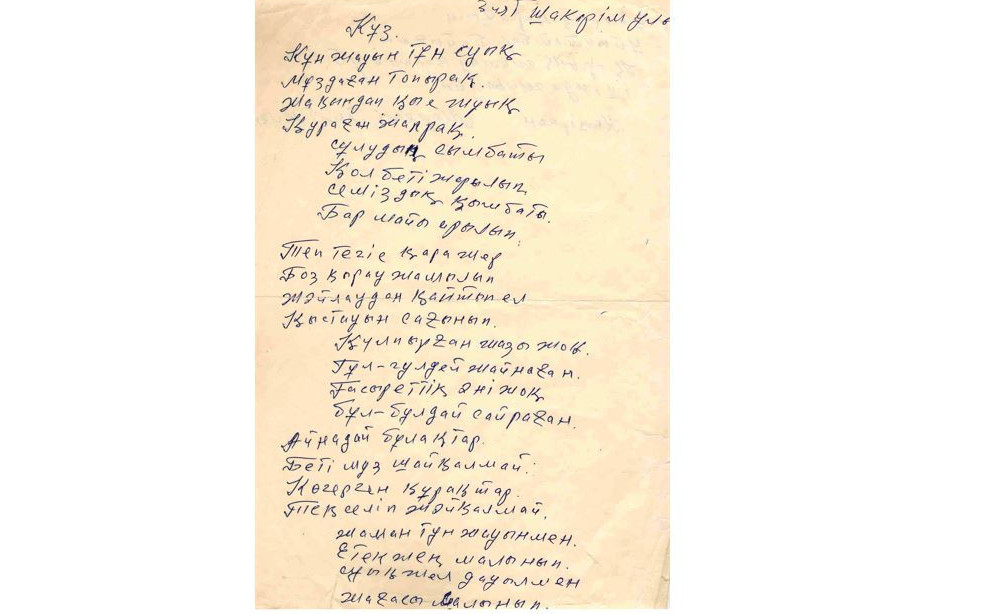 Зият Шакәрім ұлы
Күз.
Күн жауын түн суық
Мұздаған топырақ.
Жақындап қыс жуық
Қураған жапрақ.
сұлудың сымбаты
Көл беті жарылып
семіздық қымбаты.
Бар майы арылып.
Теп тегіс қара жер
Боз қырау жамылып
жәйлаудан қайтып ел
Қыстауын сағынып.
Құлпырған жазы жоқ.
Гүл-гүлдей жайнаған.
Ғасыреттік әні жоқ
бұл-бұлдай сайраған.
Айнадай бұлақтар.
Беті мұз шайқалмай.
Көгерген құрақтар.
Теңселіп жәйқалмай.
жаман түн жауынмен.
Етек жең малынып.
суық жел дауылмен
жағасы малынып.